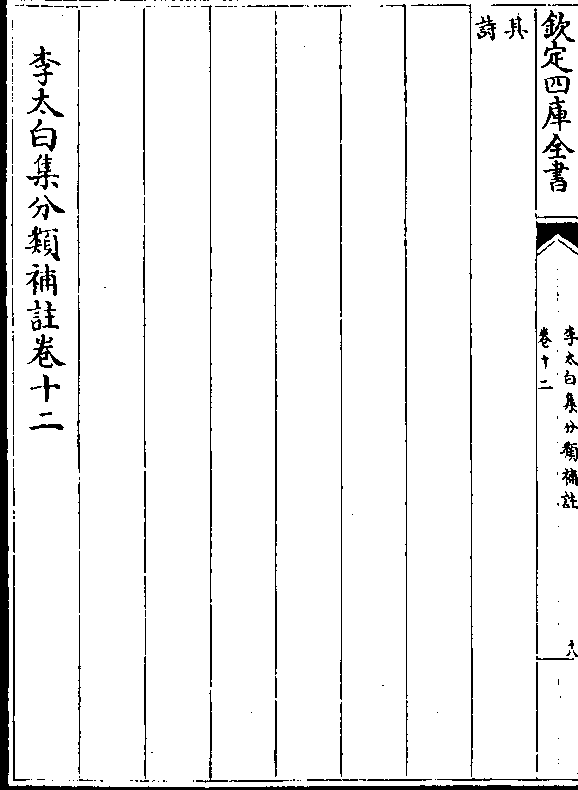 欽定四庫全書
李太白集分類補註
卷十二
十八
其
詩
李太白集分類補註卷十二